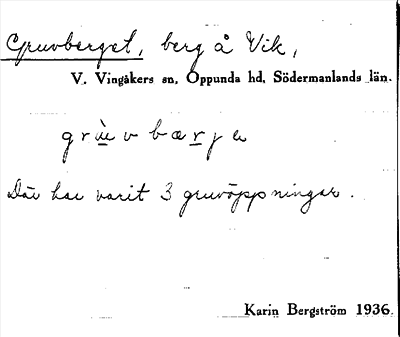 Gruvberget, berg å Vik,
V. Vingåkers sn, Oppunda hd, Södermanlands län.
grùvbærje
Där har varit 3 gruvöppningar.
Karin Bergström 1936.